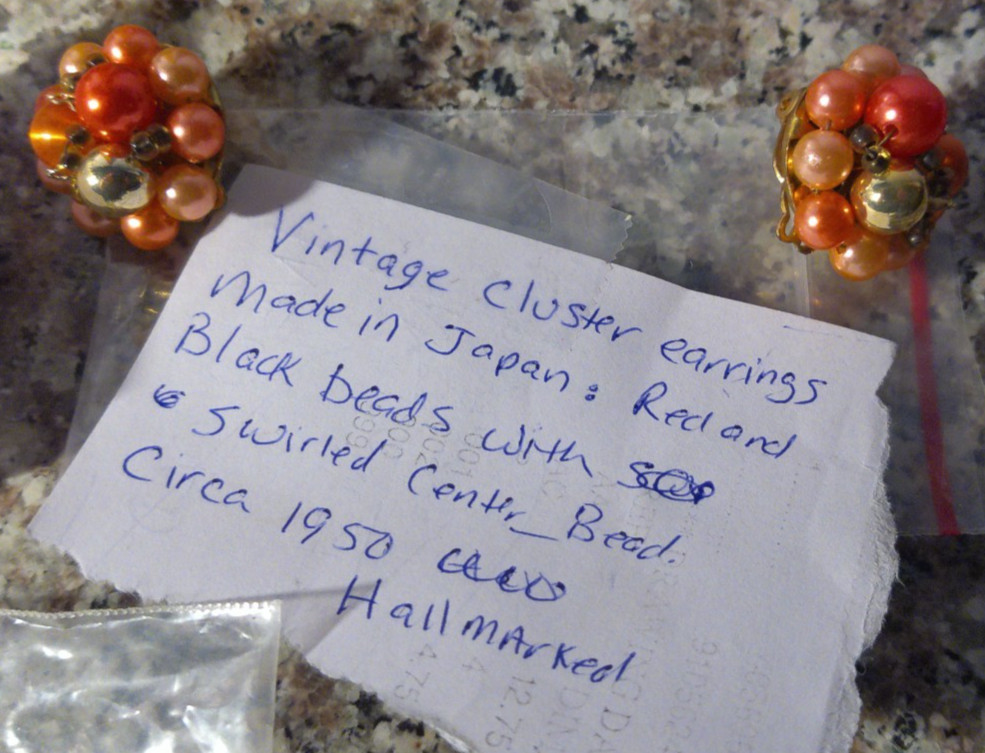 Vintage Cluster earrings
Made in Japan: Red and
Black beads with
Swirled Center_Bead.
Circa 1950
Hallmarked
4.75
4
12.75